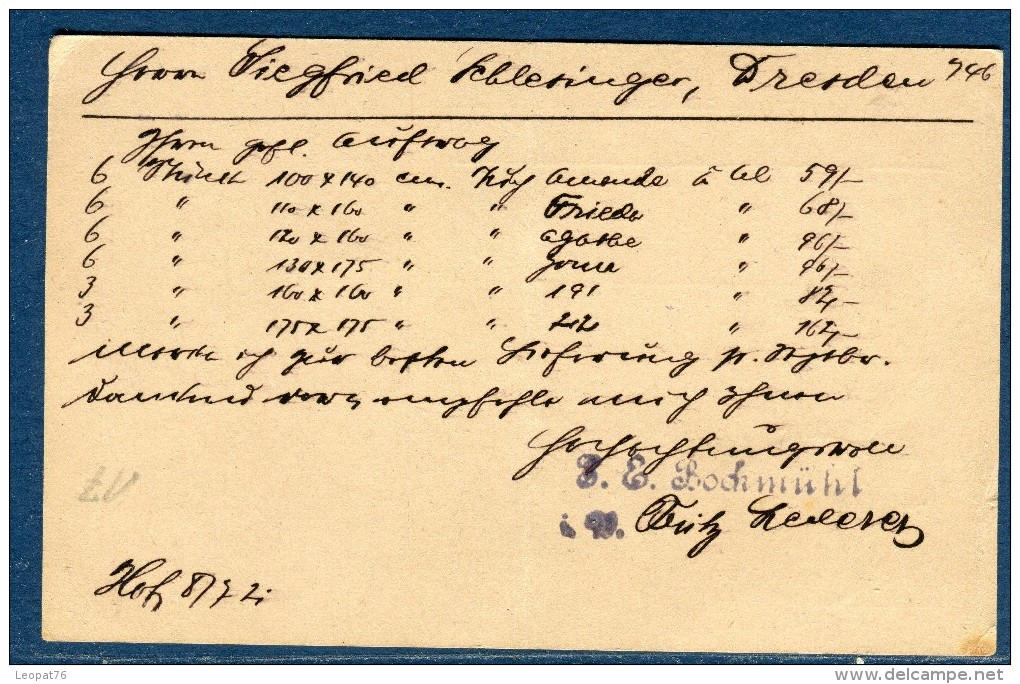 Herrn Siegfried Schlesinger, Dresden 746
Ihren gefl. Auftrag
6 Stück 100 x 140 cm. Amanda à M 59/-
6 " 110 x 160 " " Frieda " 68/-
6 " 120 x 160 " " Agathe " 96/-
6 " 130 x 175 " " " 96/-
3 " 160 x 160 " " 191 " 82/-
3 " 175 x 175 " " 212 " 162/-
werde ich zur besten Lieferung p. Septbr.
dankend empfehle mich Ihnen
Hochachtungsvoll
E. Bochmühl
Fritz Lederer
Hof, 8/7 21
Leopat76
delcampe.net